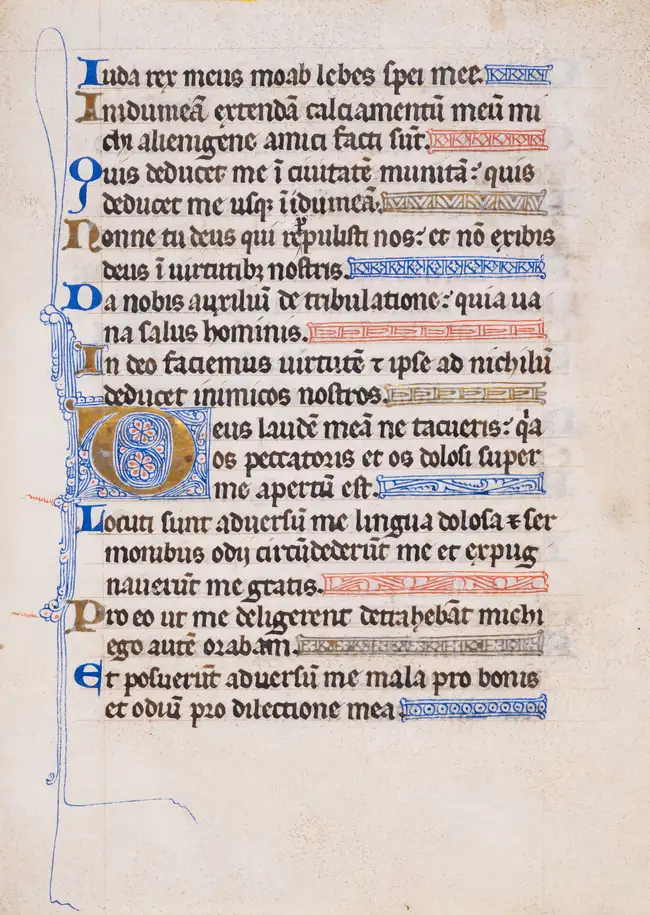 Iuda rex meus moab lebes spei mee.
In idumeā extendā calciamentū meū mi
chi alienigene amici facti sūt.
Quis deducet me ī ciuitatē munitā: quis
deducet me usqꝫ ī idumeā.
Nonne tu deus qui repulisti nos: et nō exibis
deus ī uirtutibꝫ nostris.
Da nobis auxiliū de tribulatione: quia ua
na salus hominis.
In deo faciemus uirtutē ⁊ ipse ad nichilū
deducet inimicos nostros.
Deus laudē meā ne tacueris: qͥa
os peccatoris et os dolosi super
me apertū est.
Locuti sunt aduersū me lingua dolosa ⁊ ser
monibus odij circūdederūt me et expug
nauerūt me gratis.
Pro eo ut me deligerent detrahebāt michi
ego autē orabam.
Et posuerūt aduersū me mala pro bonis
et odiū pro dilectione mea